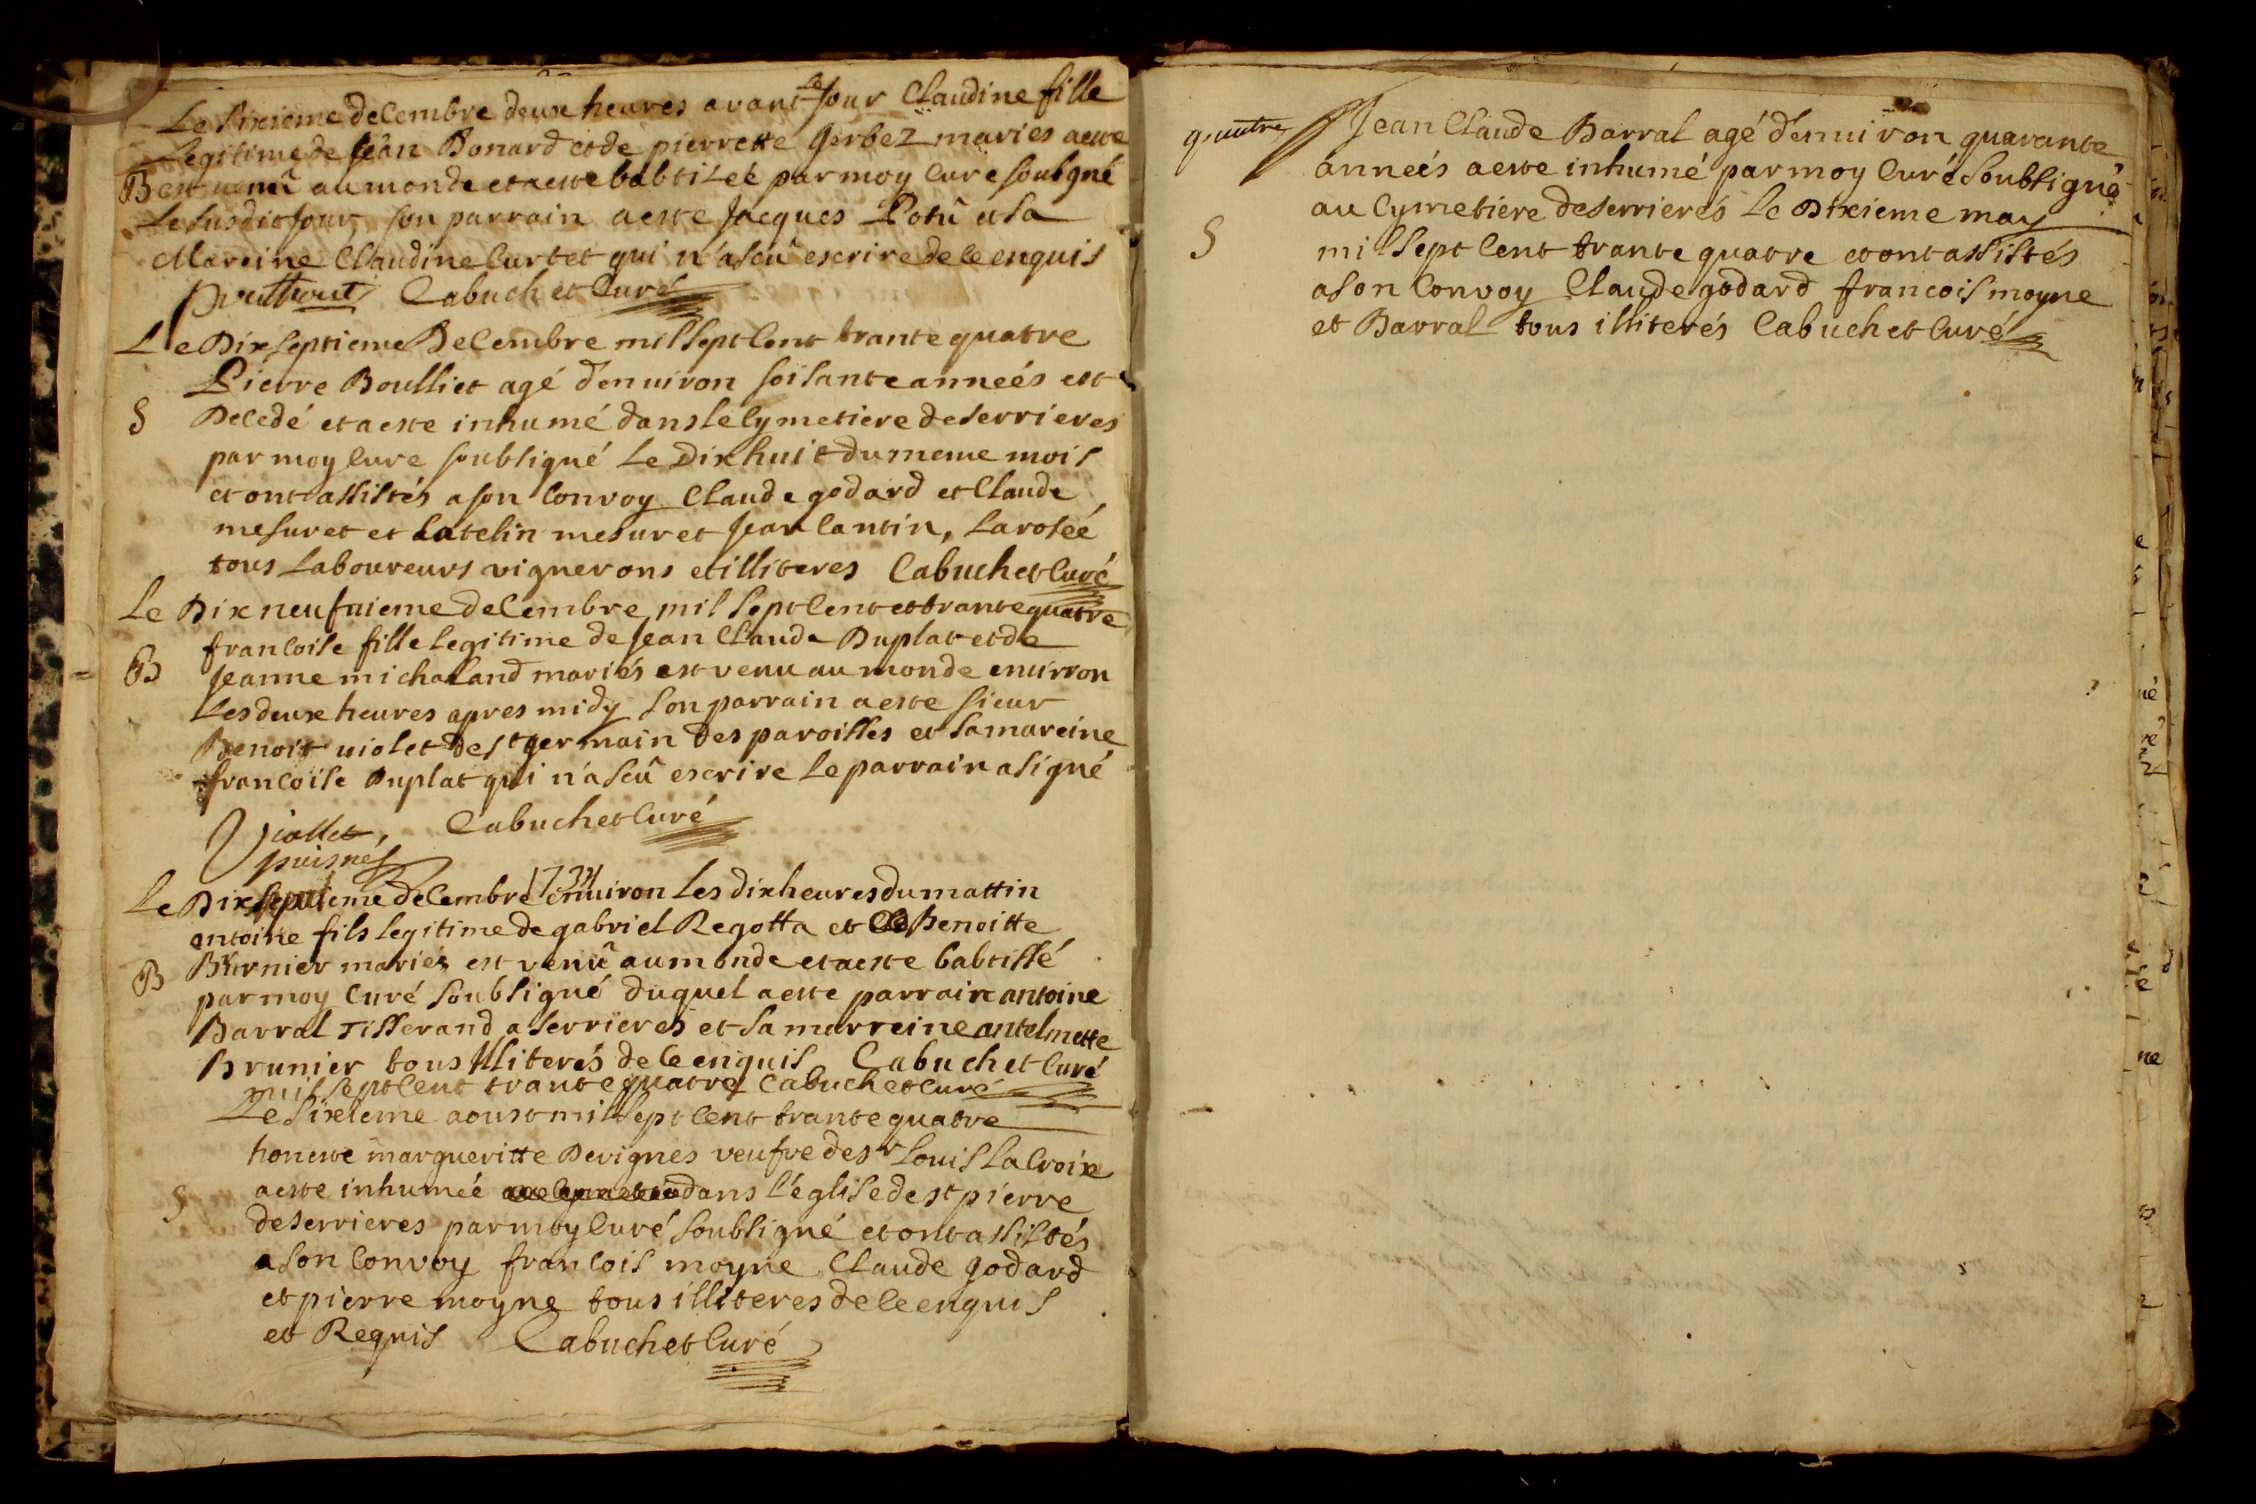 Le Sixieme decembre deux heures avant le Jour Claudine fille
Legitime de Jean Bonard et de pierrette Gerbez maries a este
B est venû au monde et a este babtiseé par moy Curé soubgné
Le susdit Jour, son parrain a este Jacques Potû et sa
Mareine Claudine Curtet qui n'a sceû escrire de ce enquis
Cabuchet Curé
Le Dix septieme Decembre mil sept cent trante quatre
Pierre Boulliet agé d'enuiron soisante anneés est
S Decedé et a este inhumé dans le Cymetiere de serrieres
par moy Cure soubsigné Le Dixhuit du meme mois
et ont assistés a son Convoy Claude godard et Claude
mesuret et Catelin mesuret Jean Cantin, Laroseé
tous Laboureurs vignerons et illiteres Cabuchet Curé
Le Dix neufuieme decembre mil sept cent et trante quatre
francoise fille legitime de Jean Claude Duplat et de
B Jeanne michaland mariés est venu au monde enuirron
Les deux heures apres midy son parrain a este sieur
Benoit uiolet de st germain des paroisses et sa mareine
francoise Duplat qui n'a sceû escrire Le parrain a signé
Viollet, Cabuchet Curé
puisnés
Le Dix septieme decembre 1734 enuiron Les dix heures du mattin
antoine fils legitime de gabriel Regotta et de Benoitte
B Burnier mariés est venû au monde et a este babtissé
par moy Curé soubsigné duquel a este parrain antoine
Barral Tisserand a serrieres et sa marreine antelmette
Brunier tous Illiterés de ce enquis Cabuchet Curé
mil sept cent trante quatre Cabuchet Curé
Le Sixieme aoust mil sept cent trante quatre
honeste margueritte Devignes veufve de sr Louis La Croix
S a este inhumeé dans l'eglise de st pierre
de serrieres par moy Curé soubsigné et ont assistés
a son Convoy francois moyne Claude godard
et pierre moyne tous illiteres de ce enquis
et Requis Cabuchet Curé
quatre Jean Claude Barral agé d'enuiron quarante
anneés a este inhumé par moy Curé soubsigné
au Cymetiere de serrierés Le Dixieme may
S mil sept cent trante quatre et ont assistés
a son Convoy Claude godard francois moyne
et Barral tous illiterés Cabuchet Curé